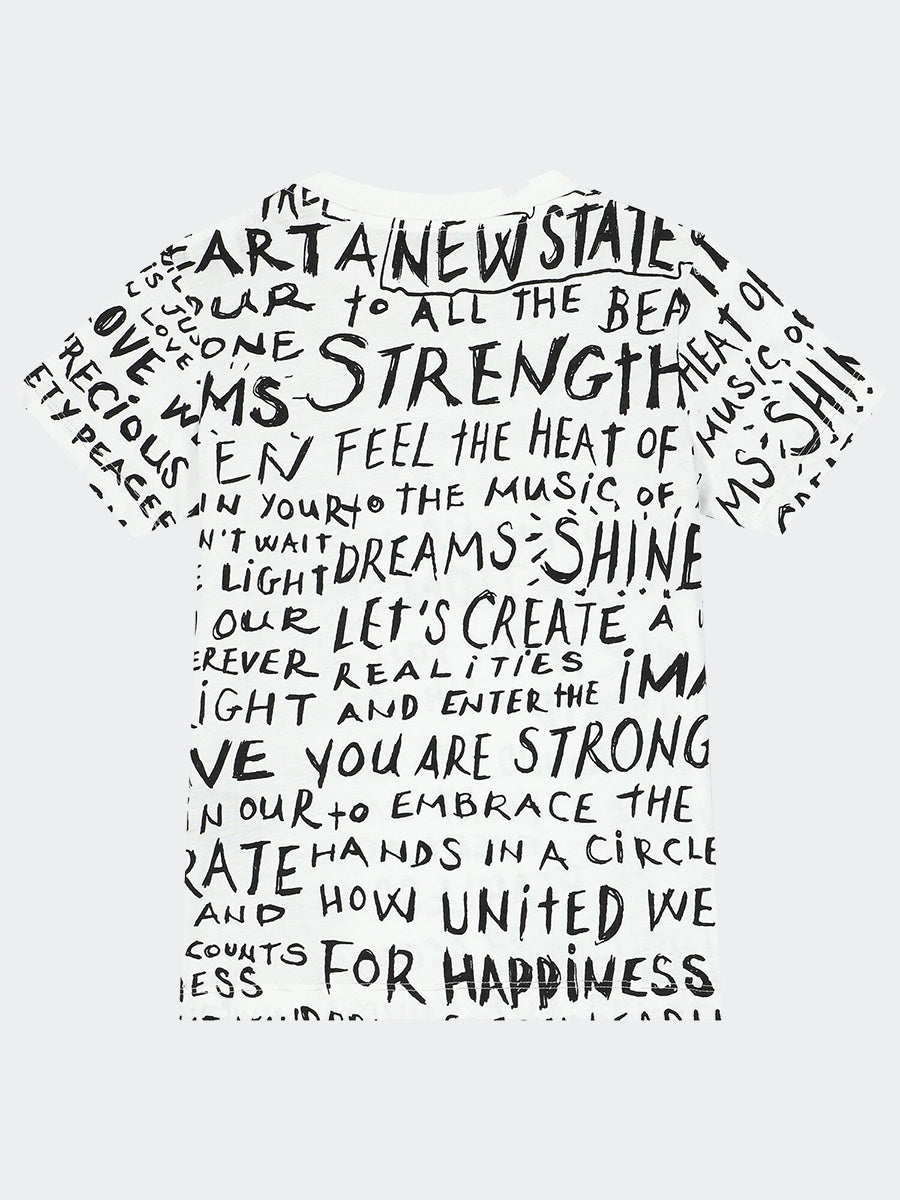 ART A NEW STATE
OUR to ALL THE BEA
ONE STRENGtH
MS
EN FEEL tHE HEAt OF
IN YOUR to THE MUSiC OF
N'T WAIT DREAMS SHINE
LiGHt
OUR LEt'S CREATE A
EREVER REALiTiES
iGHT AND ENTER tHE iMA
VE YOU ARE STRONG
iN OUR to EMBRACE THE
RATE HANDS IN A CiRCLE
AND HOW UNitED WE
COUNTS FOR HAPPiNESS
ESS
iS JU
LOVE
OVE W
RECiOUS
ETY PEACEF
HEAT OF
MUSiC OF
MS SHIN